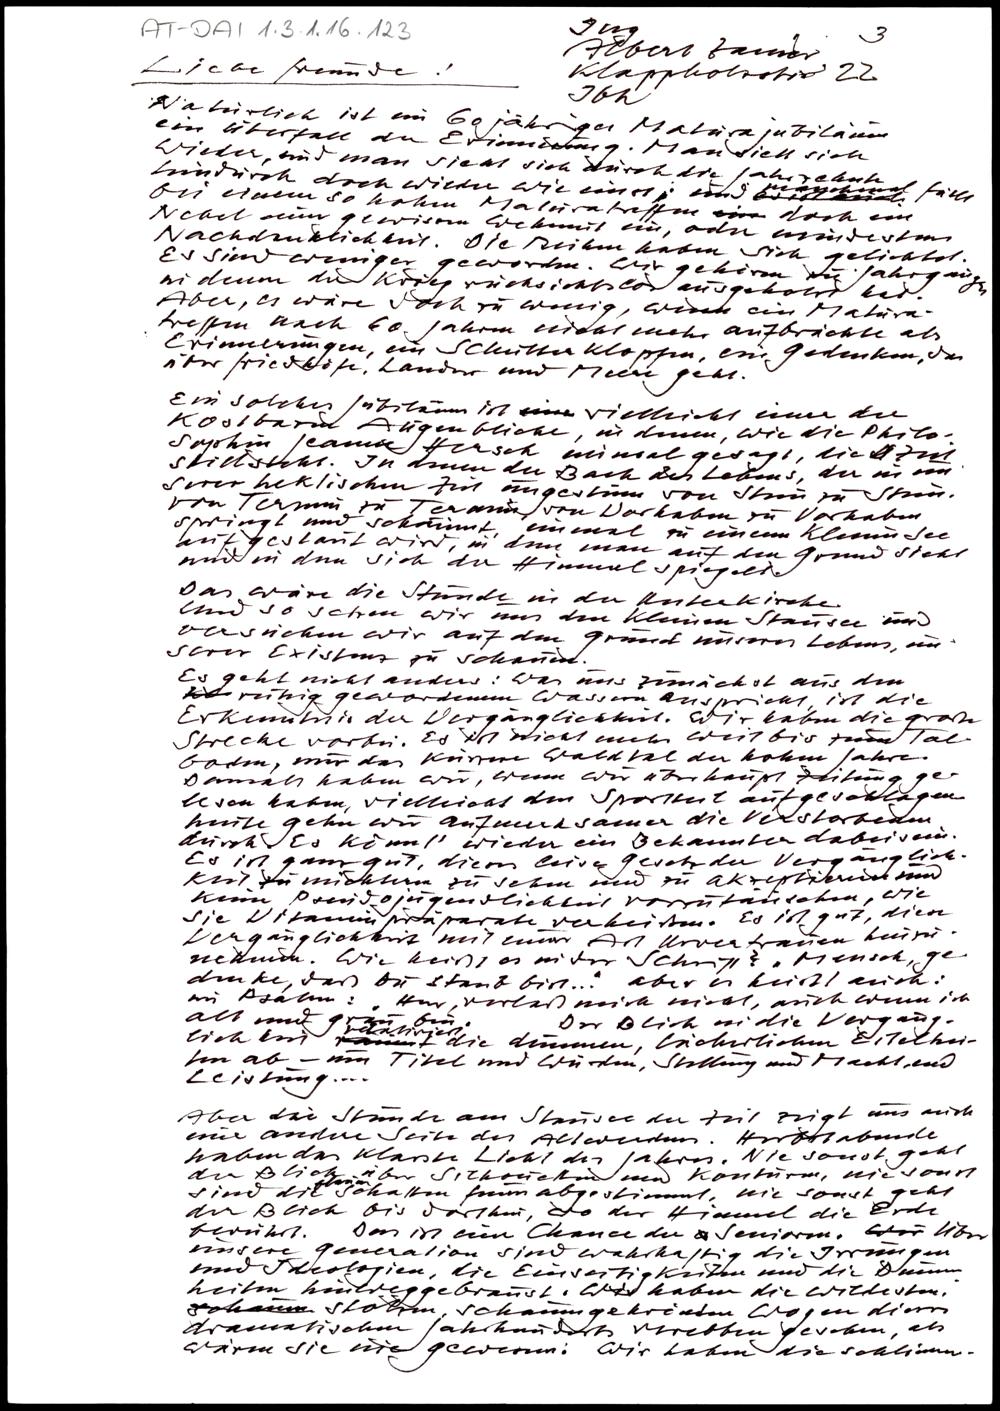 AT-DAI 1.3.1.16.123
3
Ing
Albert
22
Ibk
Liebe Freunde!
Natürlich ist ein 60jähriges Maturajubiläum
ein Überfall der Erinnerung. Man sieht sich
wieder, und man sieht sich durch die Jahrzehnte
hindurch doch wieder wie einst; und manchmal fällt
bei einem so hohen Maturatreffen doch ein
Nebel einer gewissen Wehmut ein, oder mindestens
Nachdenklichkeit. Die Reihen haben sich gelichtet.
Es sind weniger geworden. Wir gehören zu Jahrgängen
in denen der Krieg rücksichtslos ausgeholzt hat.
Aber, es wäre doch zu wenig, wenn ein Matura-
treffen nach 60 Jahren nicht mehr aufbrächte als
Erinnerungen, ein Schulterklopfen, ein Gedenken, das
über Friedhöfe, Länder und Meere geht.
Ein solches Jubiläum ist vielleicht einer der
kostbaren Augenblicke, in denen, wie die Philo-
sophin Jeanne Hersch einmal gesagt, die Zeit
stillsteht. In denen der Bach des Lebens, der in un-
serer hektischen Zeit ungestüm von Stein zu Stein,
von Termin zu Termin, von Vorhaben zu Vorhaben
springt und schäumt, einmal zu einem kleinen See
aufgestaut wird, in dem man auf den Grund sieht
und in dem sich der Himmel spiegelt.
Das wäre die Stunde in der Unterkirche.
Und so schen wir uns den kleinen Stausee und
versuchen wir auf den Grund unseres Lebens, un-
serer Existenz zu schauen.
Es geht nicht anders: Was uns zunächst aus den
ruhig gewordenen Wassern anspricht, ist die
Erkenntnis der Vergänglichkeit. Wir haben die große
Strecke vorbei. Es ist nicht mehr weit bis zum Tal-
boden, nur das kürzere Waldtal der hohen Jahre.
Damals haben wir, wenn wir überhaupt Zeitung ge-
lesen haben, vielleicht den Sportteil aufgeschlagen
heute gehn wir aufmerksamer die Verstorbenen
durch. Es könnt' wieder ein Bekannter dabei sein.
Es ist ganz gut, dieses leise Gesetz der Vergänglich-
keit nüchtern zu sehen und zu akzeptieren und
keine Pseudojugendlichkeit vorzutäuschen, wie
sie Vitaminpräparate verheißen. Es ist gut, diese
Vergänglichkeit mit einer Art Urvertrauen hinzu-
nehmen. Wie heißt es in der Schrift? "Mensch, ge-
denke, daß du Staub bist..." aber es heißt auch:
im Psalm: "Herr, verlaß mich nicht, auch wenn ich
alt und grau bin. Der Blick in die Vergäng-
lichkeit relativiert die dummen, lächerlichen Eitelkei-
ten ab – um Titel und Würden, Stellung und Macht, und
Leistung....
Aber die Stunde am Stausee der Zeit zeigt uns auch
eine andere Seite des Altwerdens. Herbstabende
haben das klarste Licht des Jahres. Nie sonst geht
der Blick über Silhouetten und Konturen, nie sonst
sind die Schatten fein abgestimmt, nie sonst geht
der Blick bis dorthin, wo der Himmel die Erde
berührt. Das ist eine Chance der Senioren. Über
unsere Generation sind wahrhaftig die Irrungen
und Ideologien, die Einseitigkeiten und die Dumm-
heiten hinweggebraust. Wir haben die wildesten,
stolzen, schaumgekrönten Wogen dieses
dramatischen Jahrhunderts verebben gesehen, als
wären sie nie gewesen. Wir haben die schlimm-